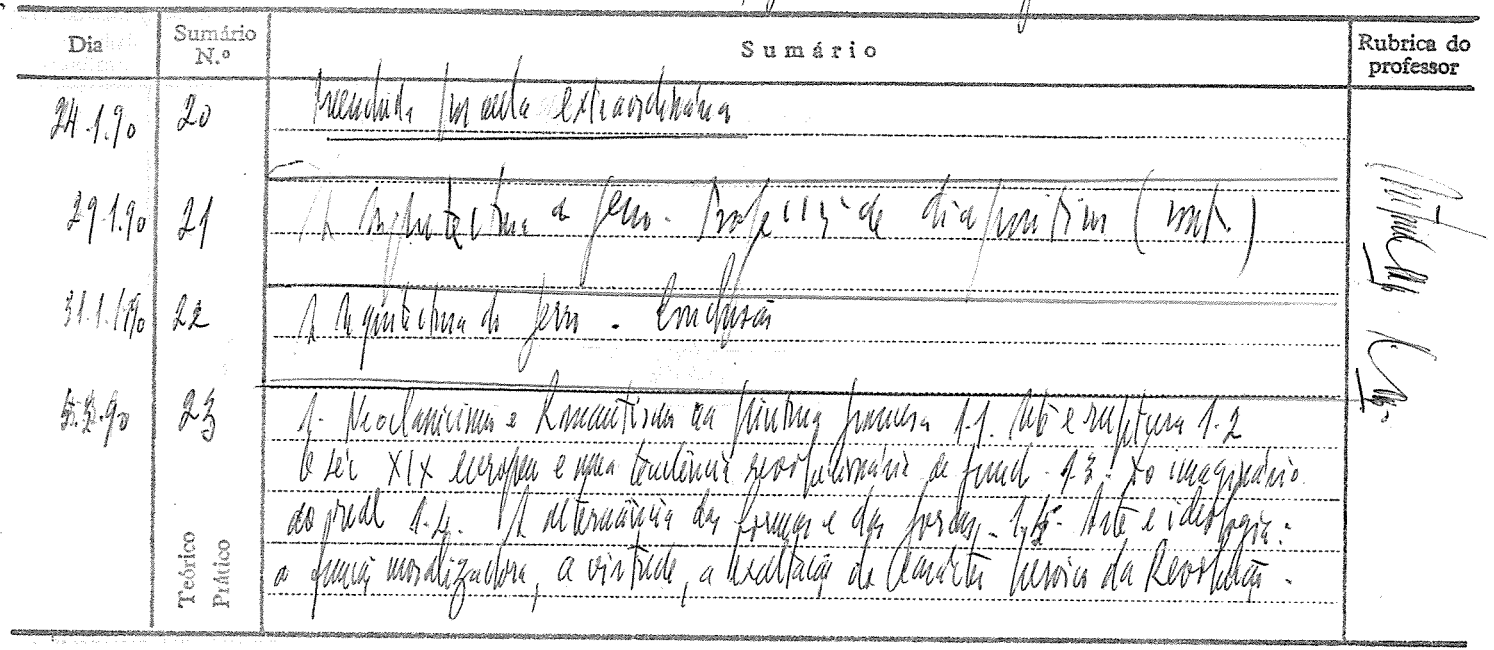 Dia Sumário N.º Sumário Rubrica do professor
24.1.90 20 Preenchida por aula extraordinária
29.1.90 21 A Arquitectura do ferro. Projecção de diapositivos (cont.)
31.1.90 22 A Arquitectura do ferro. Conclusão
5.2.90 23 1- Neoclassicismo e Romantismo na pintura francesa 1.1. Arte e ruptura 1.2
O séc XIX europeu e uma tendência revolucionária de fundo. 1.3. Do imaginário
ao real 1.4. A alternância das formas e das forças. 1.5. Arte e ideologia:
a função moralizadora, a virtude, a exaltação do carácter heroico da Revolução.
Teórico
Prático